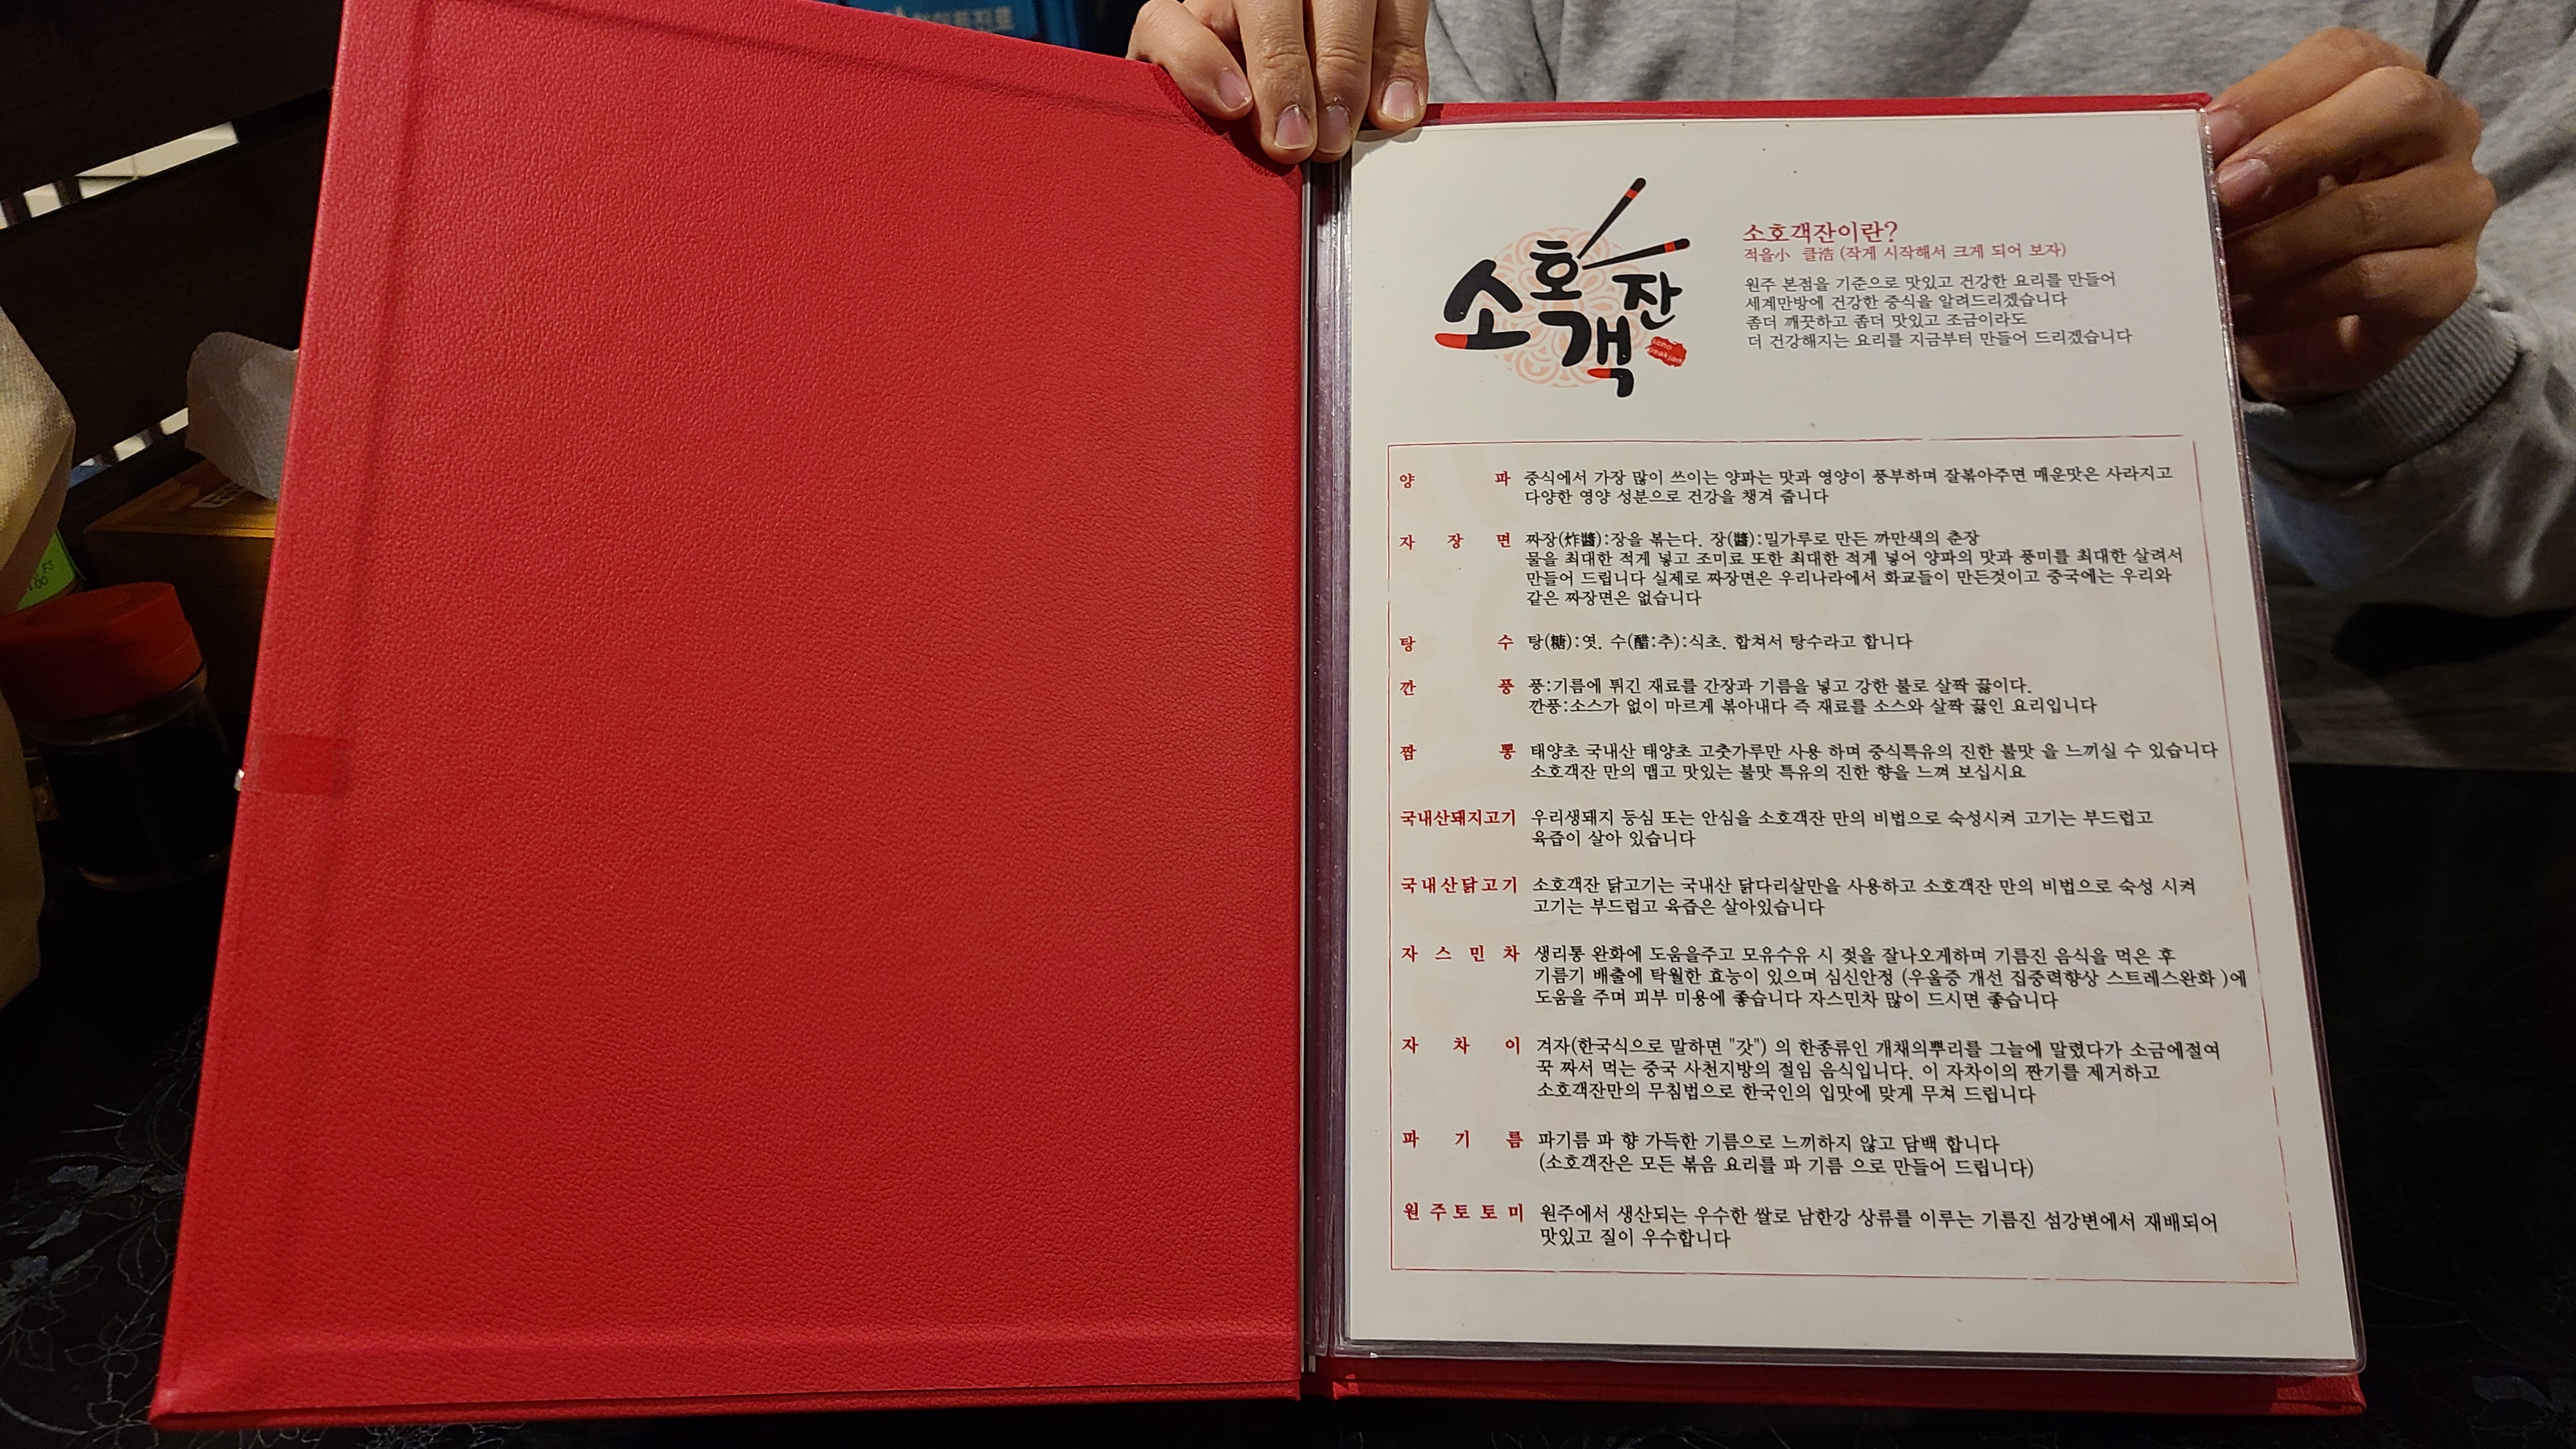 소호객잔
소호객잔이란?
적을小 클浩 (작게 시작해서 크게 되어 보자)
원주 본점을 기준으로 맛있고 건강한 요리를 만들어
세계만방에 건강한 중식을 알려드리겠습니다
좀더 깨끗하고 좀더 맛있고 조금이라도
더 건강해지는 요리를 지금부터 만들어 드리겠습니다
양 파 중식에서 가장 많이 쓰이는 양파는 맛과 영양이 풍부하며 잘볶아주면 매운맛은 사라지고
다양한 영양 성분으로 건강을 챙겨 줍니다
자 장 면 짜장(炸醬):장을 볶는다. 장(醬):밀가루로 만든 까만색의 춘장
물을 최대한 적게 넣고 조미료 또한 최대한 적게 넣어 양파의 맛과 풍미를 최대한 살려서
만들어 드립니다 실제로 짜장면은 우리나라에서 화교들이 만든것이고 중국에는 우리와
같은 짜장면은 없습니다
탕 수 탕(糖):엿. 수(醋:추):식초. 합쳐서 탕수라고 합니다
깐 풍 풍:기름에 튀긴 재료를 간장과 기름을 넣고 강한 불로 살짝 끓이다.
깐풍:소스가 없이 마르게 볶아내다 즉 재료를 소스와 살짝 끓인 요리입니다
짬 뽕 태양초 국내산 태양초 고춧가루만 사용 하며 중식특유의 진한 불맛 을 느끼실 수 있습니다
소호객잔 만의 맵고 맛있는 불맛 특유의 진한 향을 느껴 보십시요
국내산돼지고기 우리생돼지 등심 또는 안심을 소호객잔 만의 비법으로 숙성시켜 고기는 부드럽고
육즙이 살아 있습니다
국내산닭고기 소호객잔 닭고기는 국내산 닭다리살만을 사용하고 소호객잔 만의 비법으로 숙성 시켜
고기는 부드럽고 육즙은 살아있습니다
자 스 민 차 생리통 완화에 도움을주고 모유수유 시 젖을 잘나오게하며 기름진 음식을 먹은 후
기름기 배출에 탁월한 효능이 있으며 심신안정 (우울증 개선 집중력향상 스트레스완화 )에
도움을 주며 피부 미용에 좋습니다 자스민차 많이 드시면 좋습니다
자 차 이 겨자(한국식으로 말하면 "갓") 의 한종류인 개채의뿌리를 그늘에 말렸다가 소금에절여
꾹 짜서 먹는 중국 사천지방의 절임 음식입니다. 이 자차이의 짠기를 제거하고
소호객잔만의 무침법으로 한국인의 입맛에 맞게 무쳐 드립니다
파 기 름 파기름 파 향 가득한 기름으로 느끼하지 않고 담백 합니다
(소호객잔은 모든 볶음 요리를 파 기름 으로 만들어 드립니다)
원 주 토 토 미 원주에서 생산되는 우수한 쌀로 남한강 상류를 이루는 기름진 섬강변에서 재배되어
맛있고 질이 우수합니다